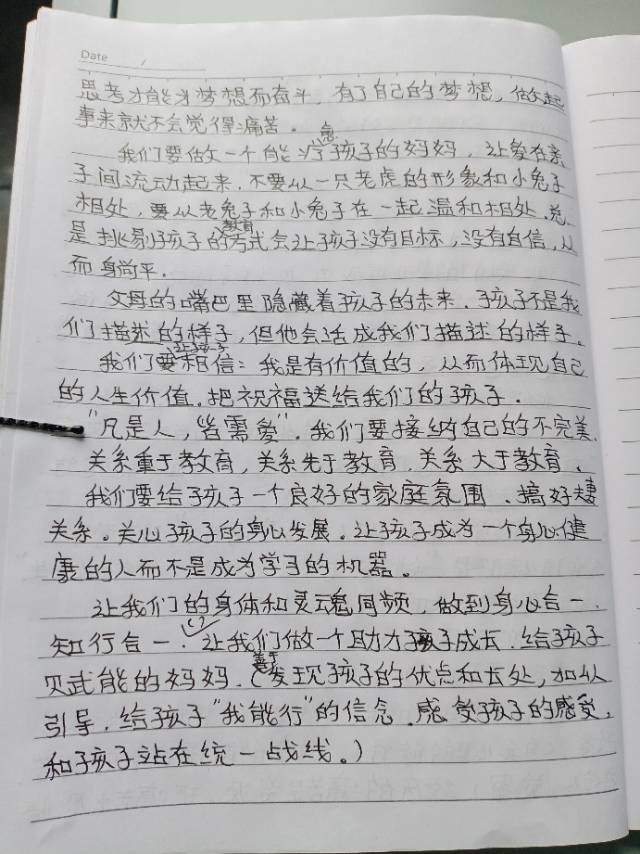 Date /
思考才能为梦想而奋斗，有了自己的梦想，做起
事来就不会觉得痛苦。
我们要做一个能忽冷孩子的妈妈，让爱在亲
子间流动起来，不要以一只老虎的形象和小兔子
相处，要以老兔子和小兔子在一起温和相处，总
是挑剔孩子的教育方式会让孩子没有目标，没有自信，从
而身尚平。
父母的嘴巴里隐藏着孩子的未来，孩子不是我
们描述的样子，但他会活成我们描述的样子。
我们要让孩子相信：我是有价值的，从而体现自己
的人生价值，把祝福送给我们的孩子。
"凡是人，皆需爱"，我们要接纳自己的不完美，
关系重于教育，关系先于教育，关系大于教育。
我们要给孩子一个良好的家庭氛围，搞好夫妻
关系。关心孩子的身心发展，让孩子成为一个身心健
康的人而不是成为学习的机器。
让我们的身体和灵魂同频，做到身心合一，
知行合一。让我们做一个助力孩子成长，给孩子
赋能的妈妈，（善于发现孩子的优点和长处，加以
引导，给孩子"我能行"的信念，感受孩子的感受，
和孩子站在统一战线。）